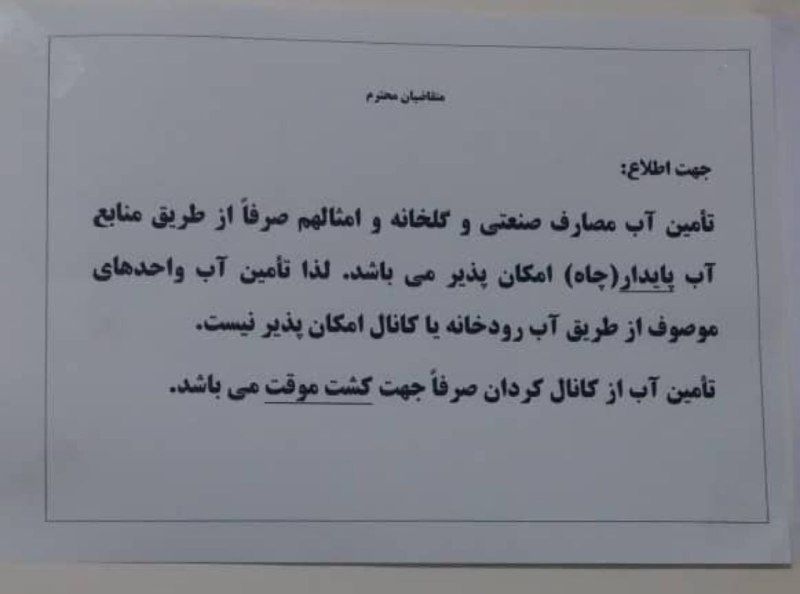 متقاضیان محترم
جهت اطلاع:
تأمین آب مصارف صنعتی و گلخانه و امثالهم صرفاً از طریق منابع
آب پایدار(چاه) امکان پذیر می باشد. لذا تأمین آب واحدهای
موصوف از طریق آب رودخانه یا کانال امکان پذیر نیست.
تأمین آب از کانال کردان صرفاً جهت کشت موقت می باشد.